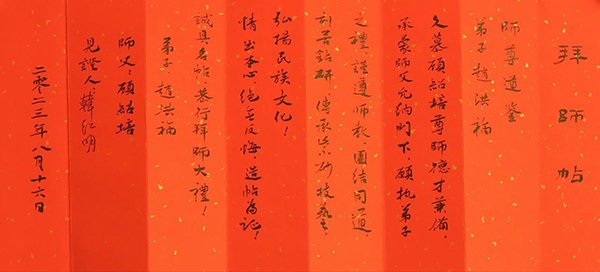 拜師帖
師尊道鑒
弟子趙洪福
久慕顧銘培尊師德才兼備,
承蒙師父允納門下,願執弟子
之禮,謹遵師教,團結同道,
刻苦鉆研,傳承
技藝,
弘揚民族文化!
情出本心絕無反悔,造帖為証!
誠具名帖,恭行拜師大禮!
弟子 趙洪福
師父:顧銘培
見證人:韓紅明
二零二三年八月十六日